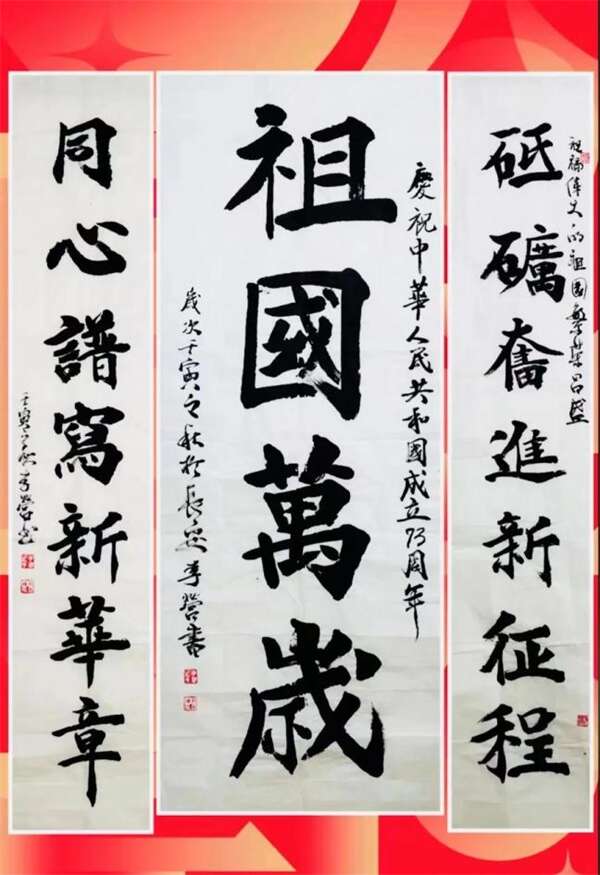 祝福伟大的祖國繁榮昌盛
砥礪奮進新征程
慶祝中華人民共和國成立73周年
祖國萬歲
歲次壬寅之秋於長安李營書
同心譜寫新華章
壬寅之秋李營書